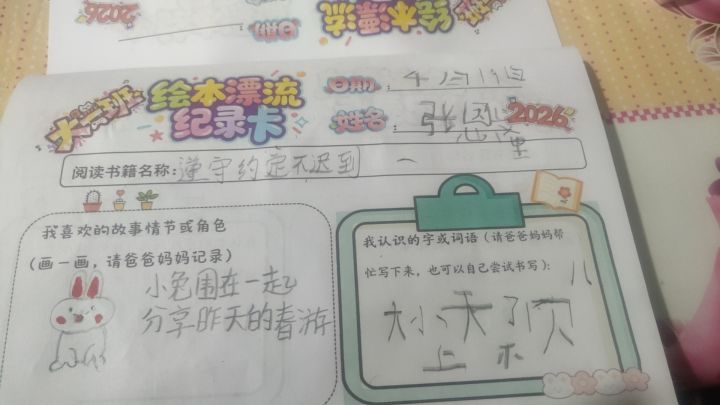 2026
日期
绘本漂流
大二班
绘本漂流
纪录卡
日期：4月11日
姓名：张恩
2026
阅读书籍名称：遵守约定不迟到
我喜欢的故事情节或角色
（画一画，请爸爸妈妈记录）
小兔围在一起
分享昨天的春游
我认识的字或词语（请爸爸妈妈帮
忙写下来，也可以自己尝试书写）：
大小天了
儿
上木